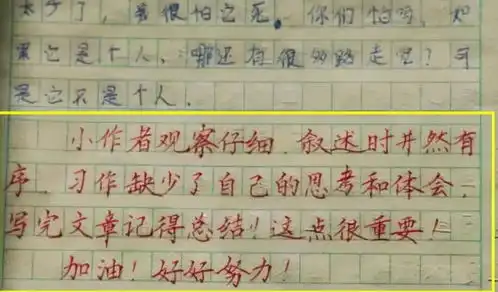 太少了，我很怕它死。你们怕吗，如
果它是个人，哪还有很多路走呢？可
是它不是个人。
小作者观察仔细，叙述时井然有
序，习作缺少了自己的思考和体会，
写完文章记得总结！这点很重要！
加油！好好努力！